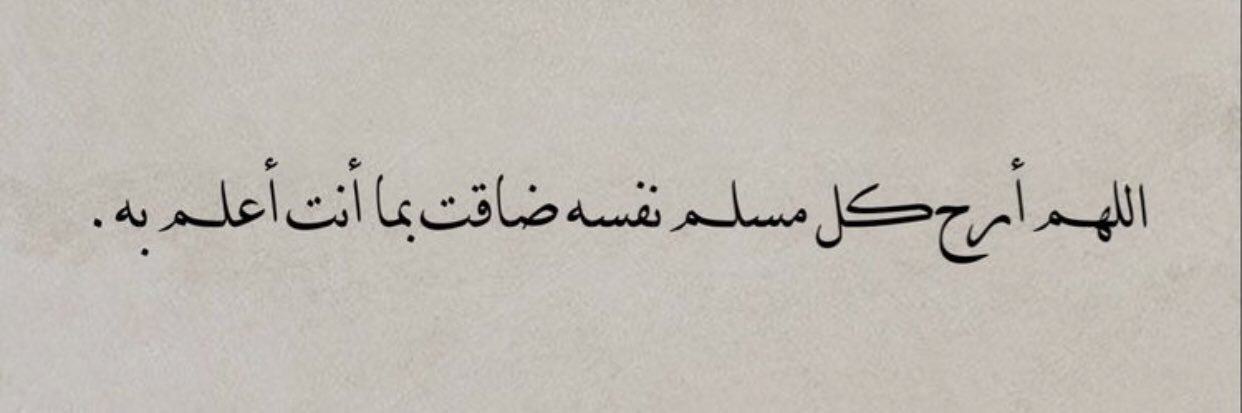 اللهم أرح كل مسلم نفسه ضاقت بما أنت أعلم به .